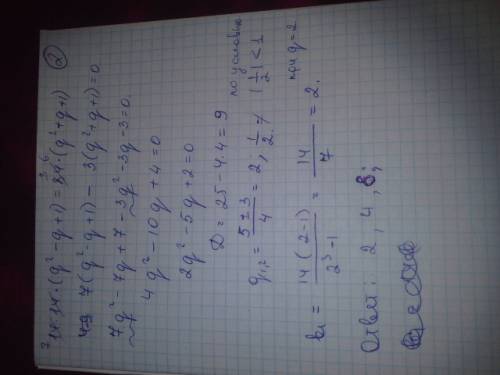 ②
14·34·(q²-q+1) = 84·(q²+q+1)
7(q²-q+1) - 3(q²+q+1) = 0
7q²-7q+7-3q²-3q-3=0
4q²-10q+4=0
2q²-5q+2=0
D = 25-4·4 = 9
q₁,₂ = (5±3)/4 = 2, 1/2.
по условию |1/2| < 1
b₁ = 14(2-1)/(2³-1) = 14/7 = 2. при q=2
Ответ: 2, 4, 8;